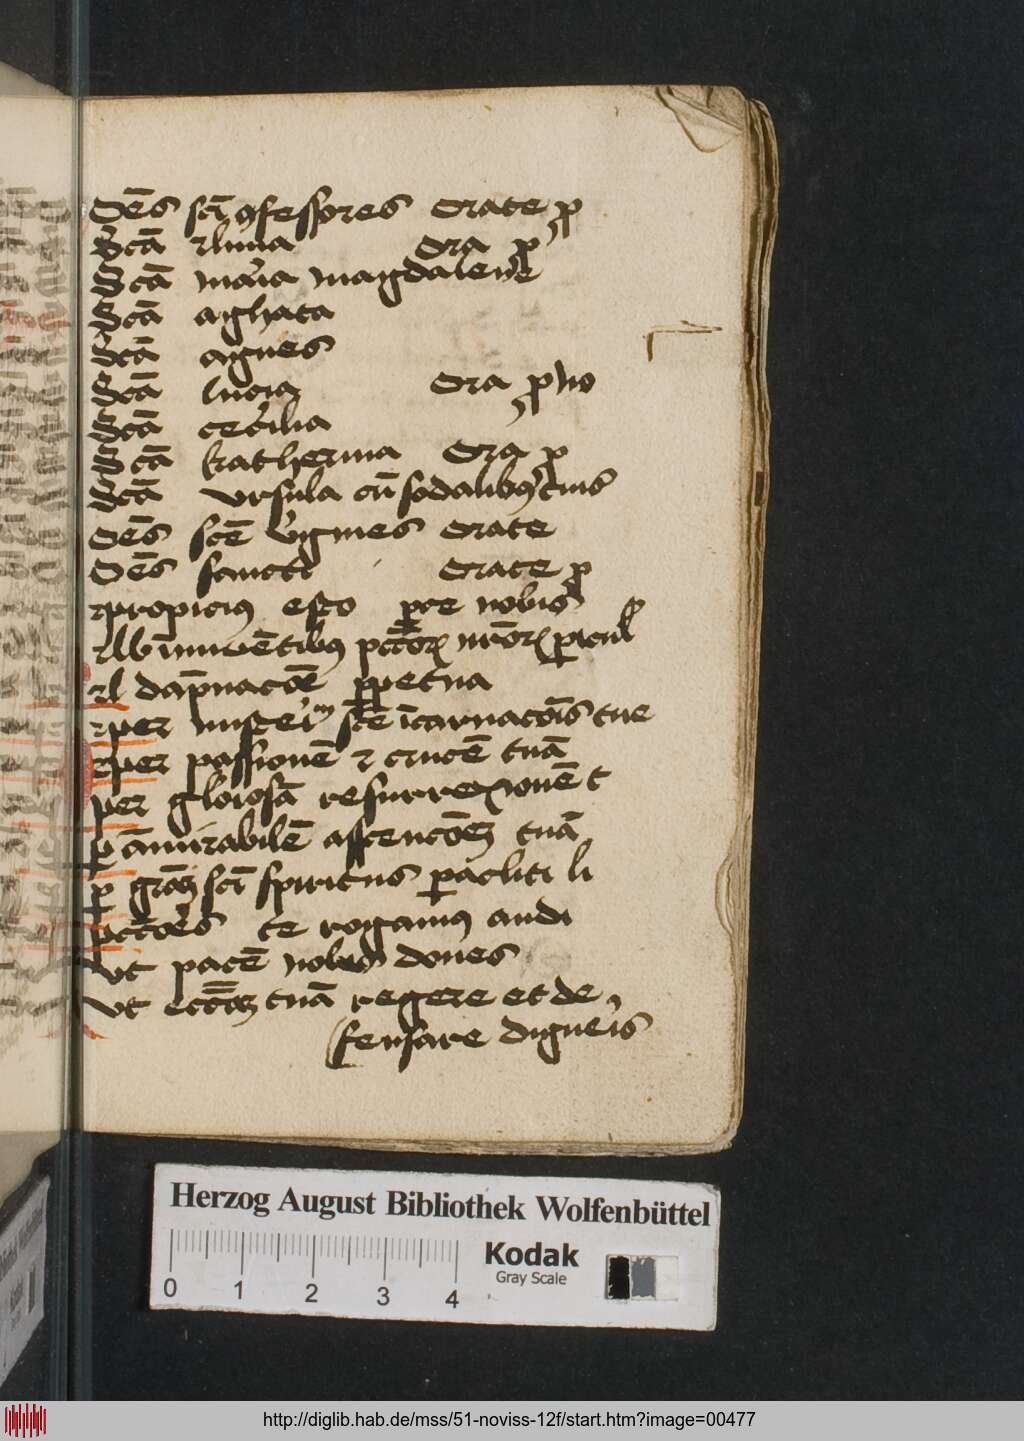 Oēs scī ꝯfessores Orate ꝓ
Scā Anna Ora ꝓ
Scā maria magdalene
Scā aghata
Scā agnes
Scā lucia Ora ꝓ no
Scā cecilia
Scā katherina Ora ꝓ
Scā vrsula cū sodalibꝰ tuis
Oēs scē virgines Orate
Oēs sancti Orate ꝓ
propiciꝰ esto pce nobis
Ab īminētibꝰ pctōꝝ nrōꝝ ꝑicul
A dāpnacōē ꝑpetua
per misteriū scē īcarnacōis tue
per passionē ⁊ crucē tuā
per gloiosā resurrexionē t
ꝑ āmirabilē assencōēꝫ tuā
ꝑ grāꝫ scī spiritus ꝑacliti li
pctōēs te rogamꝰ audi
vt pacē nobis dones
vt ecctāꝫ tuā regere et de
fensare digneis
Herzog August Bibliothek Wolfenbüttel
Kodak
Gray Scale
0 1 2 3 4
http://diglib.hab.de/mss/51-noviss-12f/start.htm?image=00477